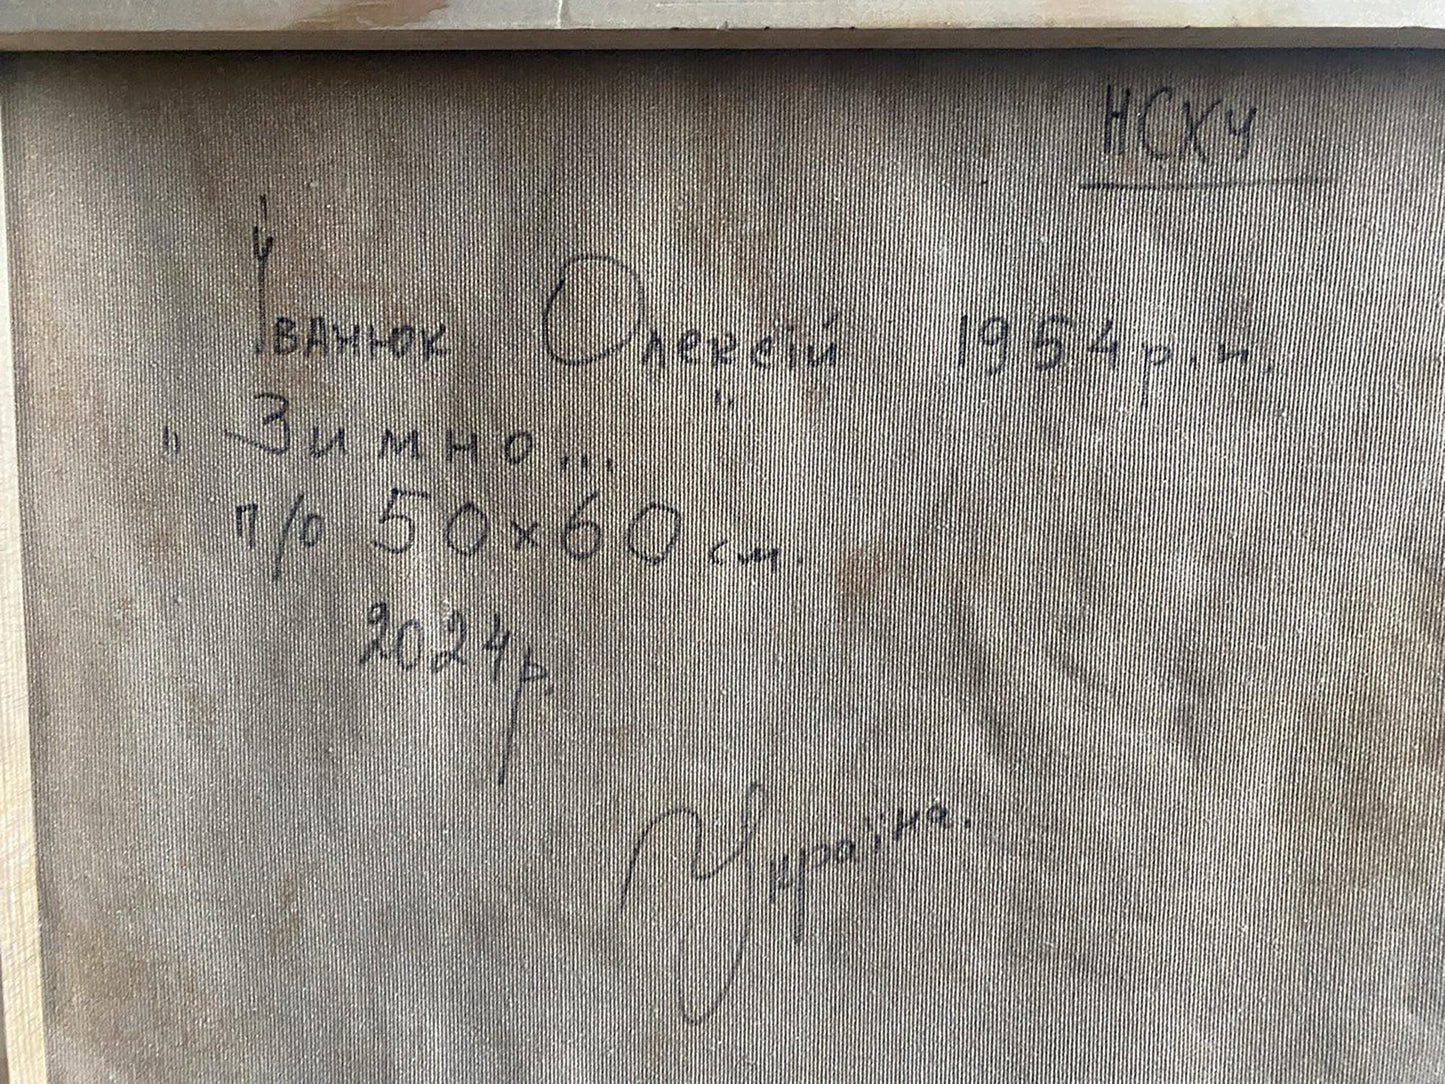 НСХУ
Іванюк Олексій 1954 р.н.
"Зимно..."
п/о 50х60 см.
2024р.
Україна.